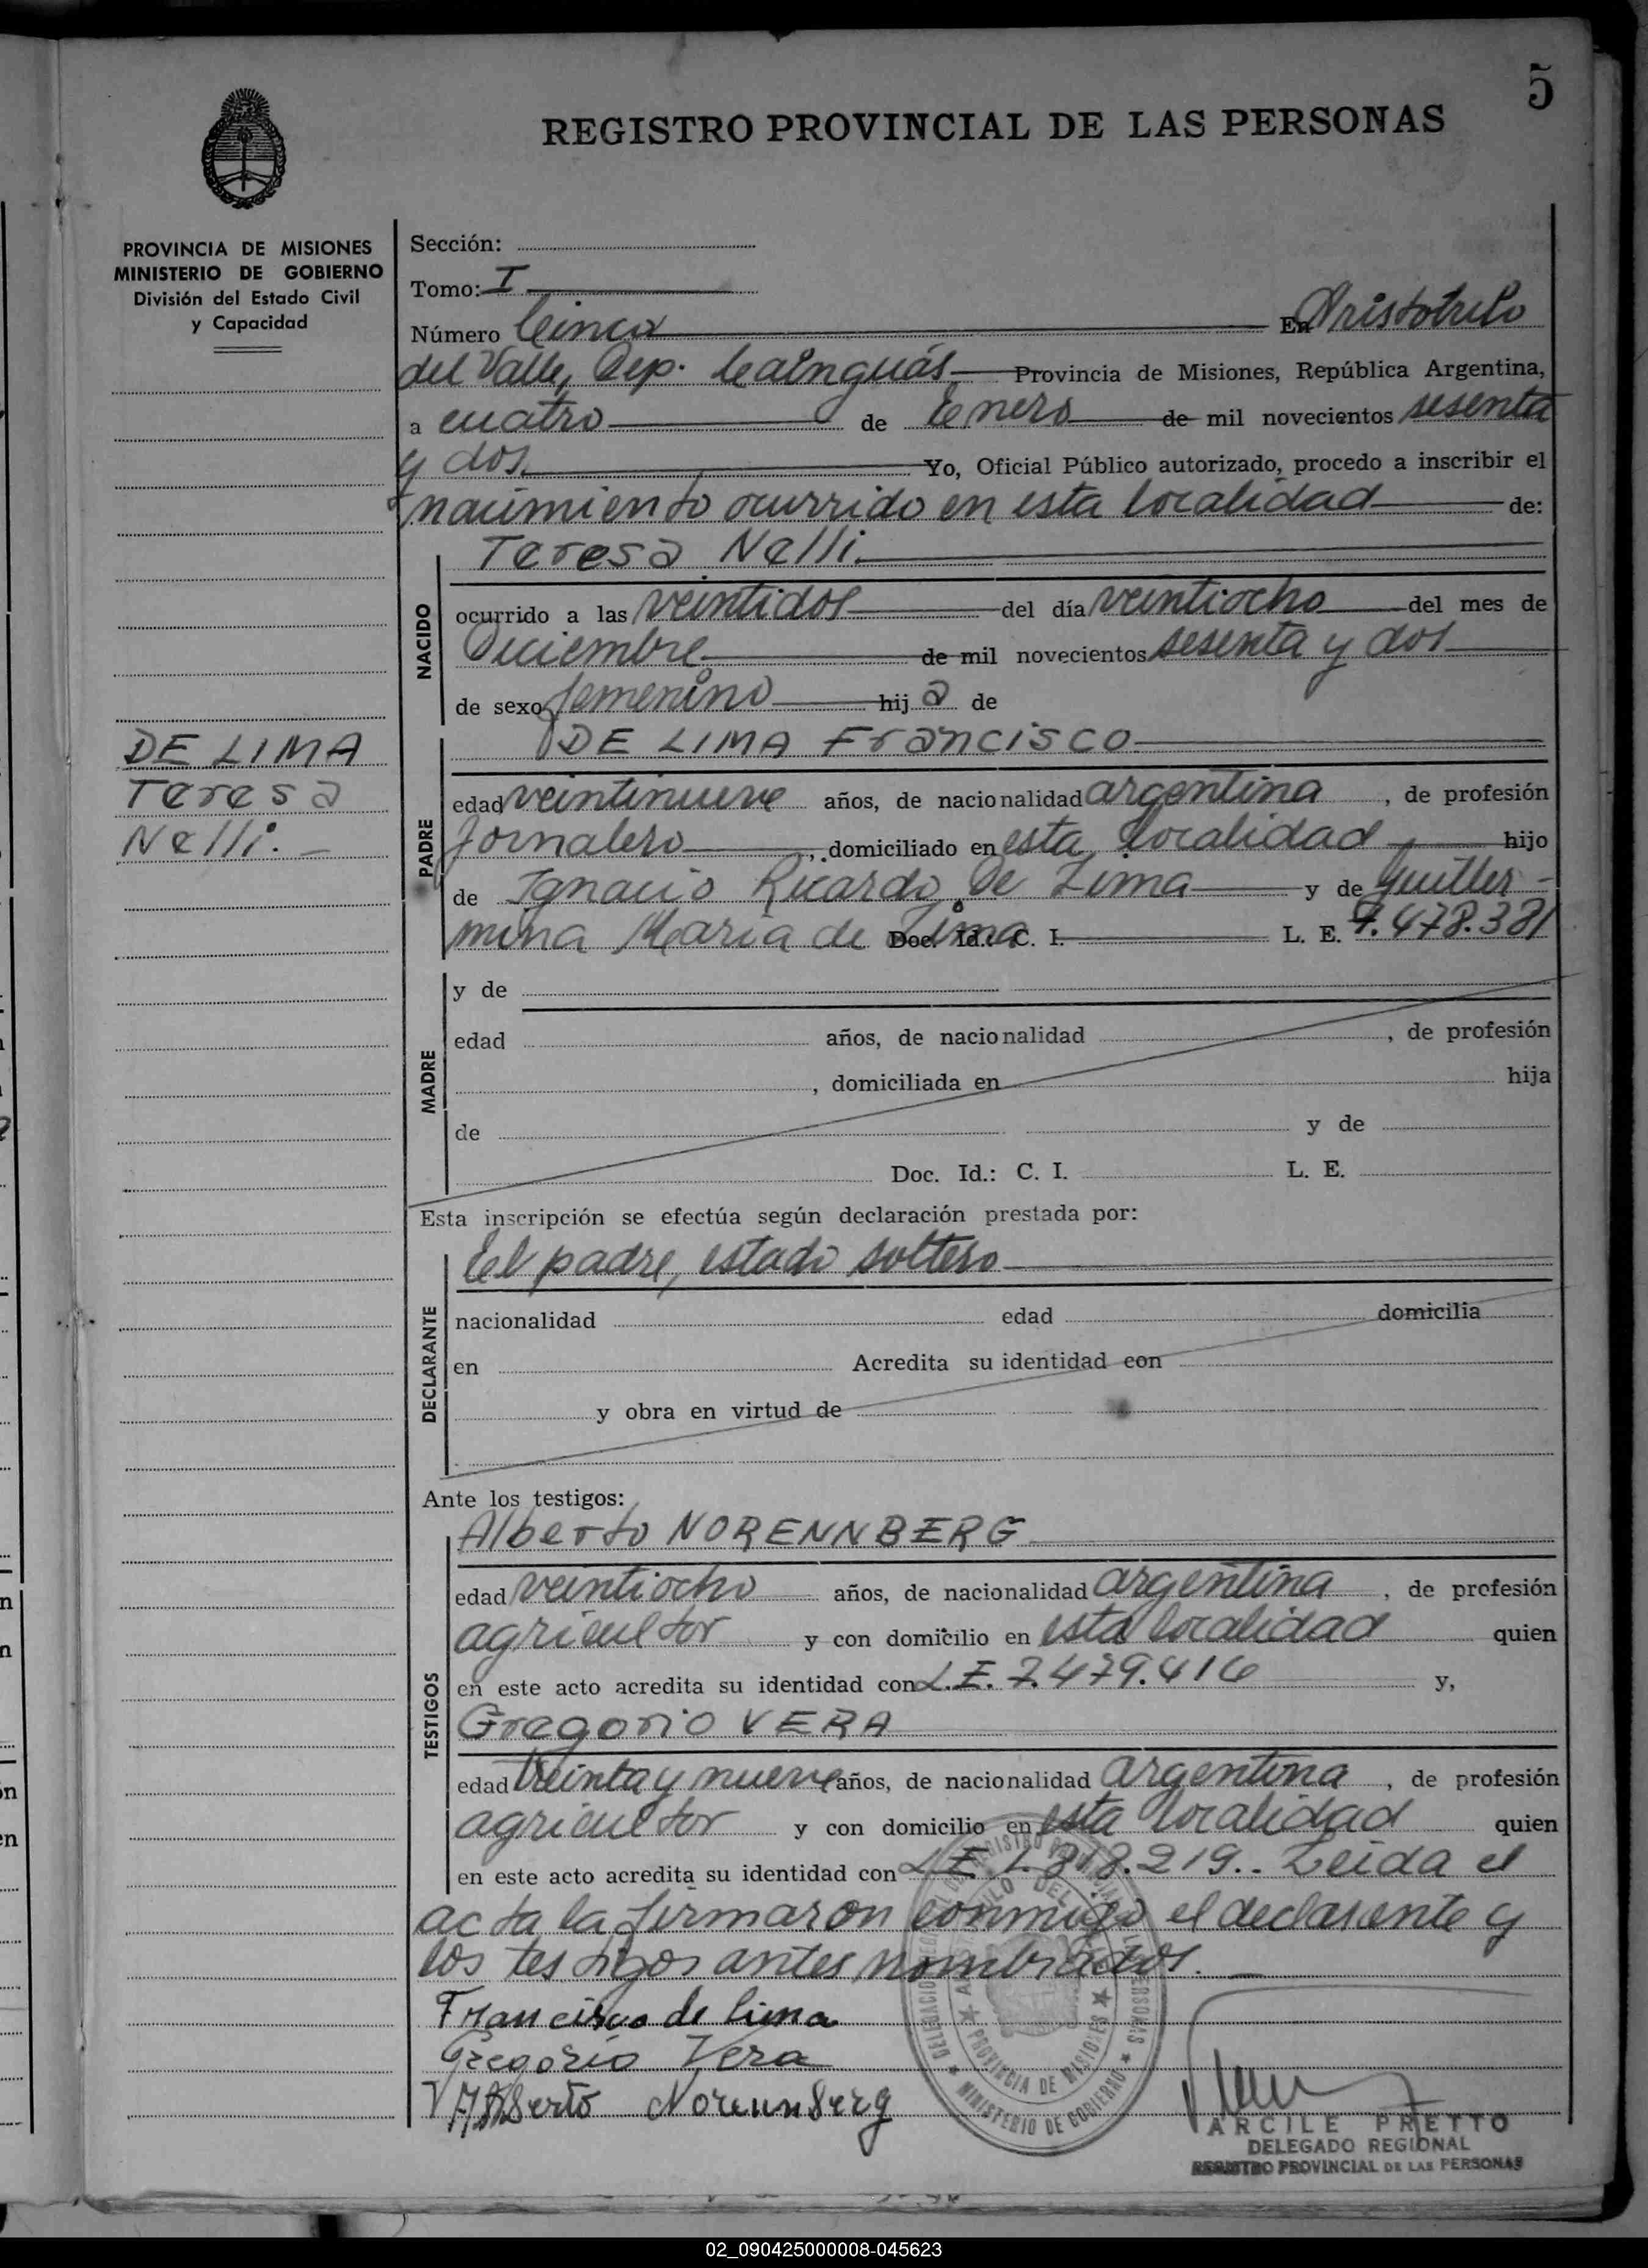 5
REGISTRO PROVINCIAL DE LAS PERSONAS
PROVINCIA DE MISIONES
MINISTERIO DE GOBIERNO
División del Estado Civil
y Capacidad
DE LIMA
Teresa
Nelli. —
Sección:
Tomo: I
Número Cinco En Aristobulo
del Valle, Dep. Cainguás Provincia de Misiones, República Argentina,
a cuatro de Enero de mil novecientos sesenta
y dos. Yo, Oficial Público autorizado, procedo a inscribir el
nacimiento ocurrido en esta localidad de:
NACIDO
Teresa Nelli.
ocurrido a las veintidos del día veintiocho del mes de
Diciembre de mil novecientos sesenta y dos
de sexo femenino hij a de
PADRE
DE LIMA Francisco
edad veintinueve años, de nacionalidad argentina, de profesión
Jornalero, domiciliado en esta localidad hijo
de Ignacio Ricardo De Lima y de Guiller-
mina María de Lima Doc. Id.: C. I. L. E. 7.478.381
MADRE
y de
edad años, de nacionalidad , de profesión
, domiciliada en hija
de y de
Doc. Id.: C. I. L. E.
Esta inscripción se efectúa según declaración prestada por:
DECLARANTE
El padre, estado soltero
nacionalidad edad domicilia
en Acredita su identidad con
y obra en virtud de
Ante los testigos:
TESTIGOS
Alberto NORENNBERG
edad veintiocho años, de nacionalidad argentina, de profesión
agricultor y con domicilio en esta localidad quien
en este acto acredita su identidad con L.E. 7.479.416 y,
Gregorio VERA
edad treinta y nueve años, de nacionalidad argentina, de profesión
agricultor y con domicilio en esta localidad quien
en este acto acredita su identidad con L.E. 1.818.219.. Leida el
acta la firmaron conmigo el declarante y
los testigos antes nombrados. —
Francisco de lima
Gregorio Vera
Alberto Norennberg
PROVINCIA DE MISIONES
MINISTERIO DE GOBIERNO
ARCILE PRETTO
DELEGADO REGIONAL
REGISTRO PROVINCIAL DE LAS PERSONAS
02_090425000008-045623